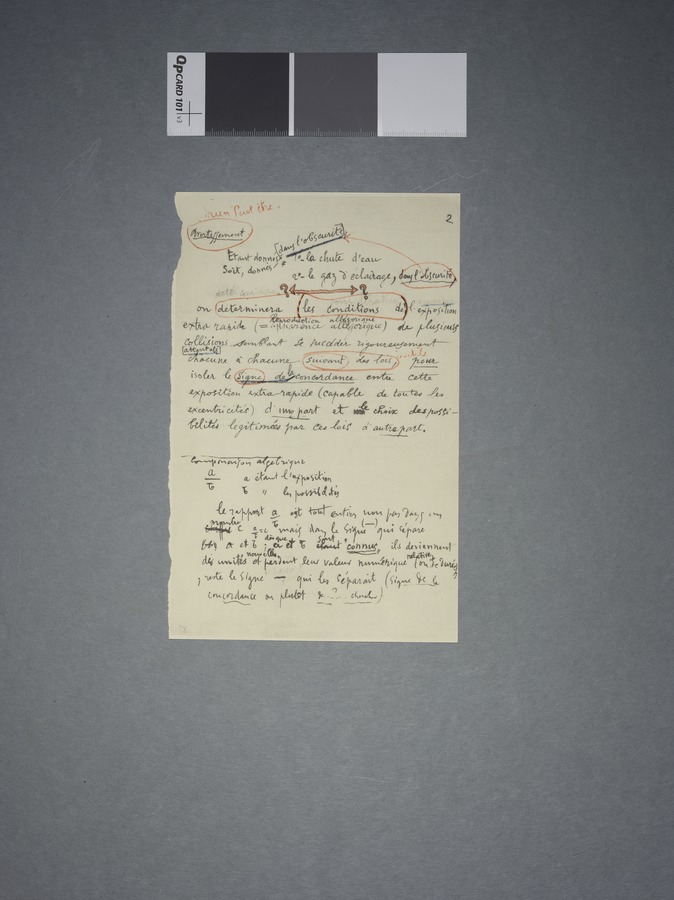 QpCARD 101 v3
rien Peut être.
2
Avertissement
[dans l'obscurité]
Etant donnés 1º la chute d'eau
Soit, donnés
2º le gaz d'éclairage, dans l'obscurité,
? ?
on determinera (les conditions) de l'exposition
Reproduction allégorique
extra rapide (= apparence allégorique) de plusieurs
collisions semblant se succéder rigoureusement
[attentats]
chacune à chacune suivant des lois, pour
isoler le Signe de la concordance entre cette
exposition extra-rapide (capable de toutes les
excentricités) d'une part et le choix des possi-
bilités légitimées par ces lois d'autre part.
Comparaison algébrique
a
b
a étant l'exposition
b " les possibilités
le rapport a/b est tout entier non pas dans un
nombre c a/b = c mais dans le Signe (—) qui sépare
a et b; dès que a et b sont "connus, ils deviennent
nouvelles
des unités et perdent leur valeur numérique relative (ou de durée)
; reste le Signe — qui les séparait (Signe de la
concordance ou plutôt de ...?... cherche)